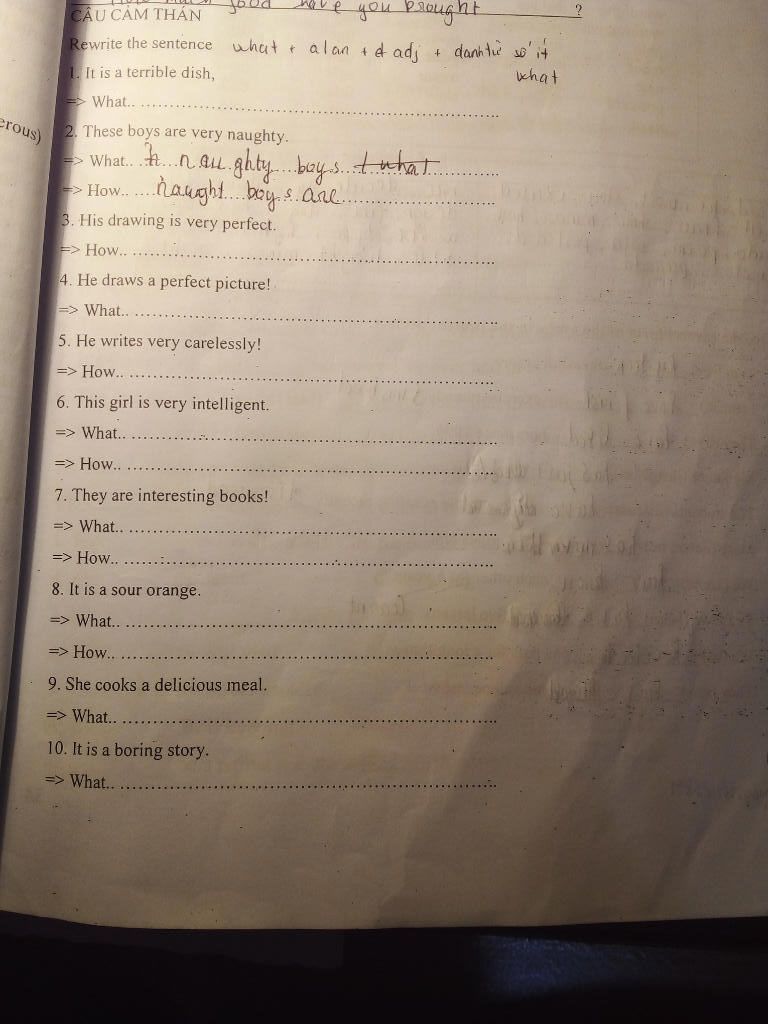 good have you brought ?
CÂU CẢM THÁN
Rewrite the sentence what + a/an + adj + danh từ số ít
1. It is a terrible dish, what
=> What.. ........................
erous)
2. These boys are very naughty.
=> What.. naughty boys
=> How.. naught boys are
3. His drawing is very perfect.
=> How.. ........................
4. He draws a perfect picture!
=> What.. ........................
5. He writes very carelessly!
=> How.. ........................
6. This girl is very intelligent.
=> What.. ........................
=> How.. ........................
7. They are interesting books!
=> What.. ........................
=> How.. ........................
8. It is a sour orange.
=> What.. ........................
=> How.. ........................
9. She cooks a delicious meal.
=> What.. ........................
10. It is a boring story.
=> What.. ........................